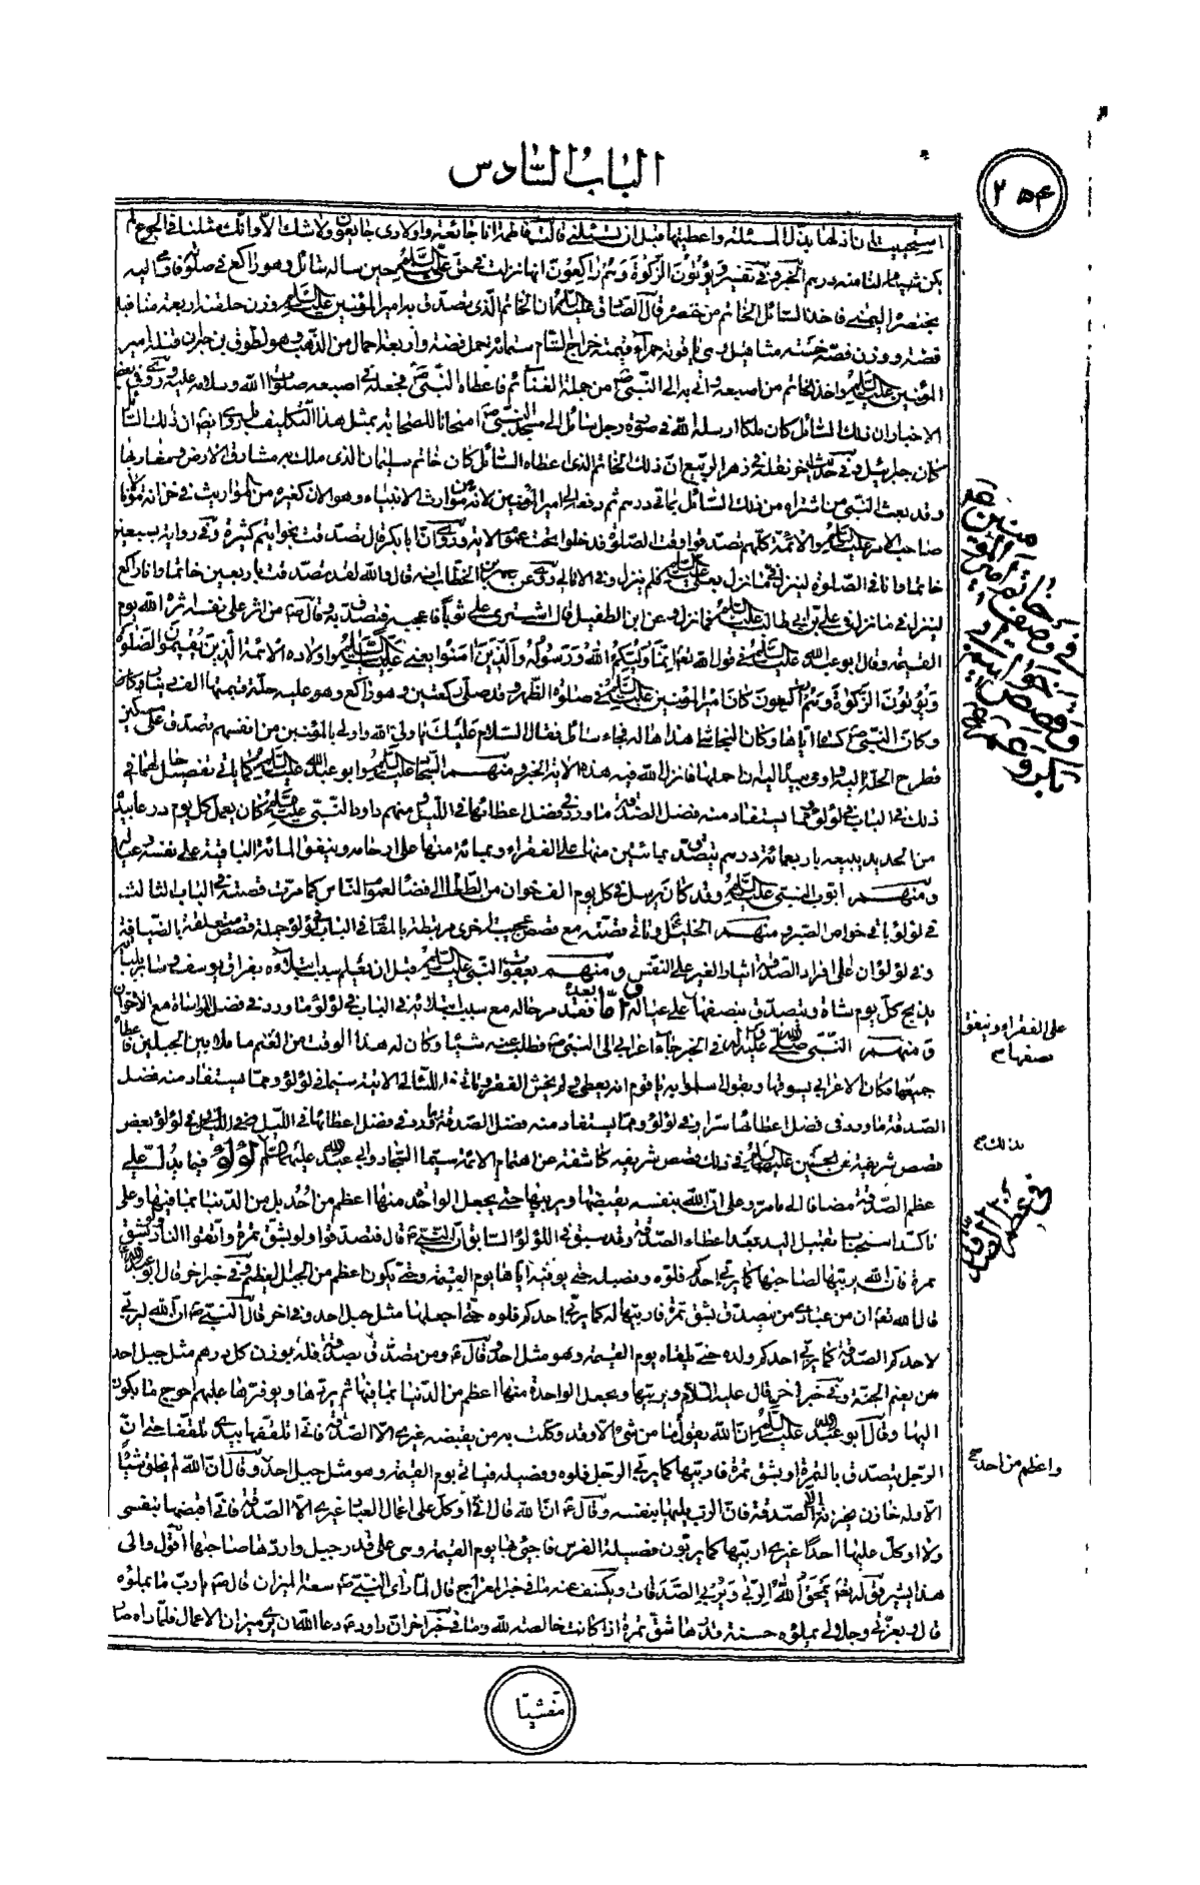 الباب السادس
٢٥٤
استحييت ان اذلها بذل المسئلة واعطيتها قبل ان تسئلني فالت انا جائعة واولادى جايعون ولا شك الا وانك مثلنا فى الجوع لم
يكن شبيها لنا منه درهم الخبر وفى تفسير ويؤتون الزكوة وهم راكعون انها نزلت فى حق على عليه السلام حين ساله سائل وهو راكع فى صلوته فاومأ اليه
بخنصره اليمنى فاخذ السائل الخاتم من خنصره قال الصادق عليه السلام ان الخاتم الذى تصدق به امير المؤمنين عليه السلام وزن حلقته اربعة مثاقيل
فضة ووزن فصه خمسة مثاقيل وهى ياقوتة حمراء قيمته خراج الشام ستمائة حمل فضة واربعة احمال من الذهب وهو لطوق بن حبران قتله امير
المؤمنين عليه السلام واخذ الخاتم من اصبعه واتى به الى النبى ص من جملة الغنائم فاعطاه النبى ص فجعله فى اصبعه صلوات الله وسلامه عليه وروى فى بعض
الاخبار ان ذلك السائل كان ملكا ارسله الله فى صورة رجل سائل الى مسجد النبى ص امتحانا للصحابة بمثل هذا التكليف بل روى ايضا ان ذلك السائل
كان جبرئيل وفى حديث اخر نقله فى زهر الربيع ان ذلك الخاتم الذى اعطاه السائل كان خاتم سليمان الذى ملك به مشارق الارض ومغاربها
وقد بعث النبى من اشتراه من ذلك السائل بماة درهم ثم دفعه الى امير المؤمنين لانه من موارث الانبياء وهو الان كغيره من المواريث فى خزانة مولانا
صاحب الامر عليه السلام والائمة كلهم تصدقوا وقت الصلوة فدخلوا تحت عموم الاية وروى ان ابا بكر قال تصدقت بخواتيم كثيرة وفى رواية بسبعين
خاتما وانا فى الصلوة لينزل فى ما نزل بعلى عليه السلام فلم ينزل وفى الامالى روى عن عمر بن الخطاب انه قال والله لقد تصدقت باربعين خاتما وانا راكع
لينزل فى ما نزل فى على بن ابى طالب عليه السلام فما نزل وعن ابن الطفيل قال اشترى على ثوبا فاعجبه فتصدق به وقال ص من اثر على نفسه اثره الله يوم
القيمة وقال ابو عبد الله عليه السلام فى قول الله تعالى انما وليكم الله ورسوله والذين امنوا يعنى عليا عليه السلام واولاده الائمة الذين يقيمون الصلوة
ويؤتون الزكوة وهم راكعون كان امير المؤمنين عليه السلام فى صلوة الظهر وقد صلى ركعتين وهو راكع وهو عليه حلة قيمتها الف دينار وكان
وكان النبى ص كساه اياها وكان النجاشى هداها له فجاء سائل فقال السلام عليك يا ولى الله واولى بالمؤمنين من انفسهم تصدق على مسكين
فطرح الحلة اليه واومى بيده اليه ان احملها فانزل الله فيه هذه الاية الخبر ومنهم السجاد عليه السلام وابو عبد الله عليه السلام كما ياتى تفصيل حالهما فى
ذلك فى الباب فى لؤلؤ مما يستفاد منه فضل الصدقة ما ورد فى فضل اعطائها فى الليل ومنهم داود النبى عليه السلام كان يعمل كل يوم درعا بيده
من الحديد يبيعه باربعمائة درهم يتصدق بمائتين منها على الفقراء وبمائة منها على ارحامه وينفق المائة الباقية على نفسه وعياله
ومنهم ايوب النبى عليه السلام وقد كان يرسل فى كل يوم الف خوان من الطعام الى فضاء لعموم الناس كما مرت قصته فى الباب الثالث
فى لؤلؤ ياتى خواص الصبر ومنهم الخليل وتاتى قصته مع قصص عجيبة اخرى مرتبطة بالمقام فى الباب فى لؤلؤ جملة قصص متعلقة بالضيافة
وفى لؤلؤ ان اعلى افراد الصدقة ايثار الغير على النفس ومنهم يعقوب النبى عليه السلام قبل ان تعلم سبب ابتلاءه بفراق يوسف وساير بلياته
يذبح كل يوم شاة ويتصدق بنصفها على عياله واما بعده فقد مر حاله مع سبب ابتلائه فى الباب فى لؤلؤ ما ورد فى فضل المواساة مع الاخوان
ومنهم النبى صلى الله عليه وآله فى الخبر جاء اعرابى الى النبى ص فطلب عنه شيئا وكان له هذا الوقت من الغنم ما ملا بين الجبلين فاعطاه
جميعها فكان الاعرابى يسوقها ويقول اسلموا به يا قوم انه يعطى ولم يخش الفقر وتاتى فى اللئالى الاتية سيما فى لؤلؤ ومما يستفاد منه فضل
الصدقة ما ورد فى فضل اعطائها سرا وفى لؤلؤ ومما يستفاد منه فضل الصدقة ما ورد فى فضل اعطائها فى الليل وفى لؤلؤ بعض
قصص شريفة عن الحسين عليهما السلام فى ذلك قصص شريفة كاشفة عن اهتمام الائمة سيما السجاد وابى عبد الله عليهما السلام لؤلؤ فيما يدل على
عظم الصدقة مضافا الى ما مر وعلى ان الله بنفسه يقبضها ويربيها حتى يجعل الواحد منها اعظم من احد بل من الدنيا بما فيها وعلى
تاكد استحباب تقبيل اليد بعد اعطاء الصدقة وقد سبق فى اللؤلؤ السابق ان النبى ص قال فتصدقوا ولو بشق تمرة واتقوا النار ولو بشق
تمرة فان الله يربيها لصاحبها كما يربى احدكم فلوه وفصيله حتى يوفيه اياها يوم القيمة وحتى يكون اعظم من الجبل العظيم وفى خبر اخر قال ابو عبد الله
قال الله تعالى ان من عبادى من يتصدق بشق تمرة فاربيها له كما يربى احدكم فلوه حتى اجعلها مثل جبل احد وفى اخر قال النبى ص ان الله ليربى
لاحدكم الصدقة كما يربى احدكم ولده حتى يلقاه يوم القيمة وهو مثل احد وقال ع ومن تصدق بصدقة فله بوزن كل درهم مثل جبل احد
من نعيم الجنة وفى خبر اخر قال عليه السلام ويربيها ويجعل الواحدة منها اعظم من الدنيا بما فيها ثم يربها ويوفرها عليهم احوج ما يكون
اليها وقال ابو عبد الله عليه السلام ان الله يقول ما من شئ الا وقد وكلت به من يقبضه غيرى الا الصدقة فانى اتلقفها بيدى تلقفا حتى ان
الرجل يتصدق بالتمرة او بشق تمرة فاربيها كما يربى الرجل فلوه وفصيله فياتى يوم القيمة وهو مثل جبل احد وقال ان الله لم يخلق شيئا
الا وله خازن يخزنه الا الصدقة فان الرب يليها بنفسه وقال ع ان الله قال انى اوكل على اعمال العباد غيرى الا الصدقة فانى اقبضها بنفسى
ولا اوكل عليها احدا غيرى اربيها كما يربون فصيلة الفرس فاجئ بها يوم القيمة وهى على قدر جبل واردها صاحبها اقول والى
هذا يشير قوله تعالى يمحق الله الربى ويربى الصدقات ويكشف عنه ما فى خبر المعراج قال لما راى النبى ص سعة الميزان قال ص يا رب ما يملؤه
قال بعزتى وجلالى يملؤه حسنة قدرها شق تمرة اذا كانت خالصة لله وما فى خبر اخر ان داود ع دعا الله ان يرى ميزان الاعمال فلما راه صار
على الفقراء وينفق
نصفها م
بذلك
فى عظم الصدقة
واعظم من احد
مغشيا